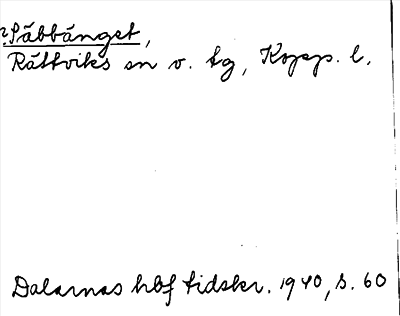 Säbbänget,
Rättviks sn v. tg, Kopp. l.
Dalarnas hbf tidskr. 1940, s. 60